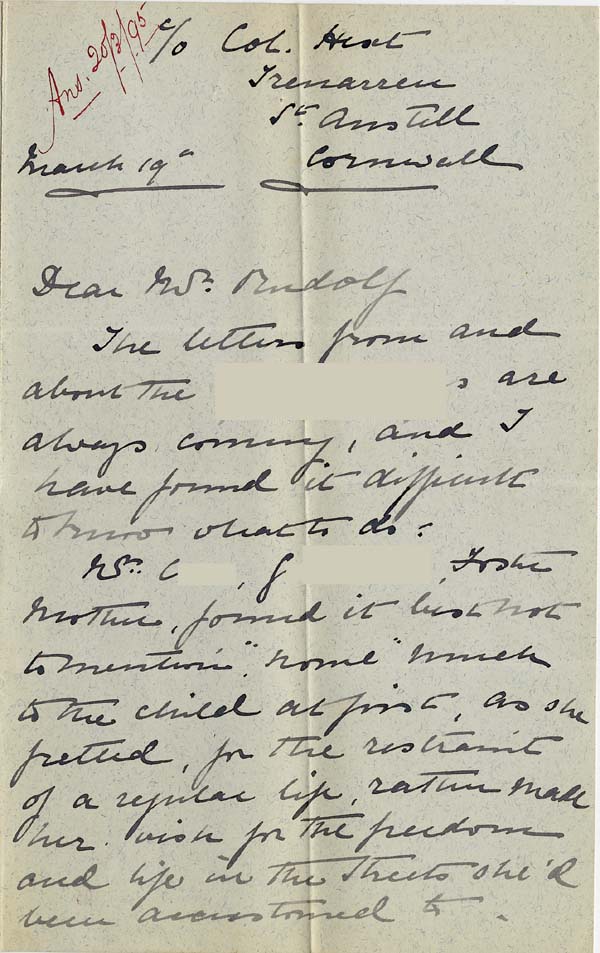 Ans. 20/3/95
c/o Col. Hext
Trenarren
St. Austell
March 19th Cornwall
Dear Mr. Rudolf
The letters from and
about the s are
always coming, and I
have found it difficult
to know what to do:
Mrs. C , G , Foster
Mother, found it best not
to mention "home" much
to the child at first, as she
fretted, for the restraint
of a regular life, rather made
her wish for the freedom
and life in the streets she'd
been accustomed to.